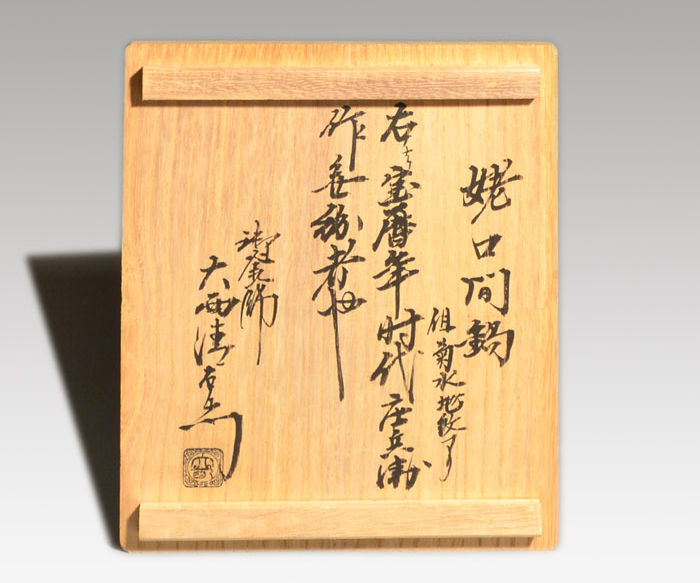 姥口間鍋
但菊水地紋アリ
右ハ宝暦年時代庄兵衛
作無紛者也
御釜師
大西清右衛門